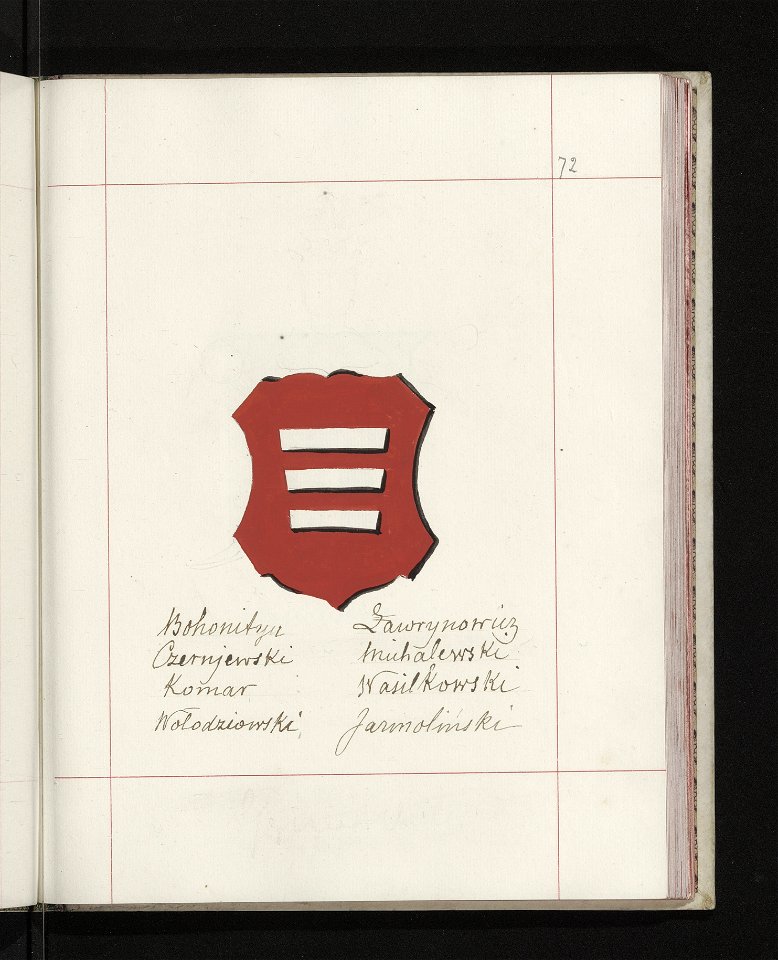 72
Bohonityn Ławrynowicz
Czernjewski Michalewski
Komar Wasilkowski
Wołodziowski, Jarmoliński